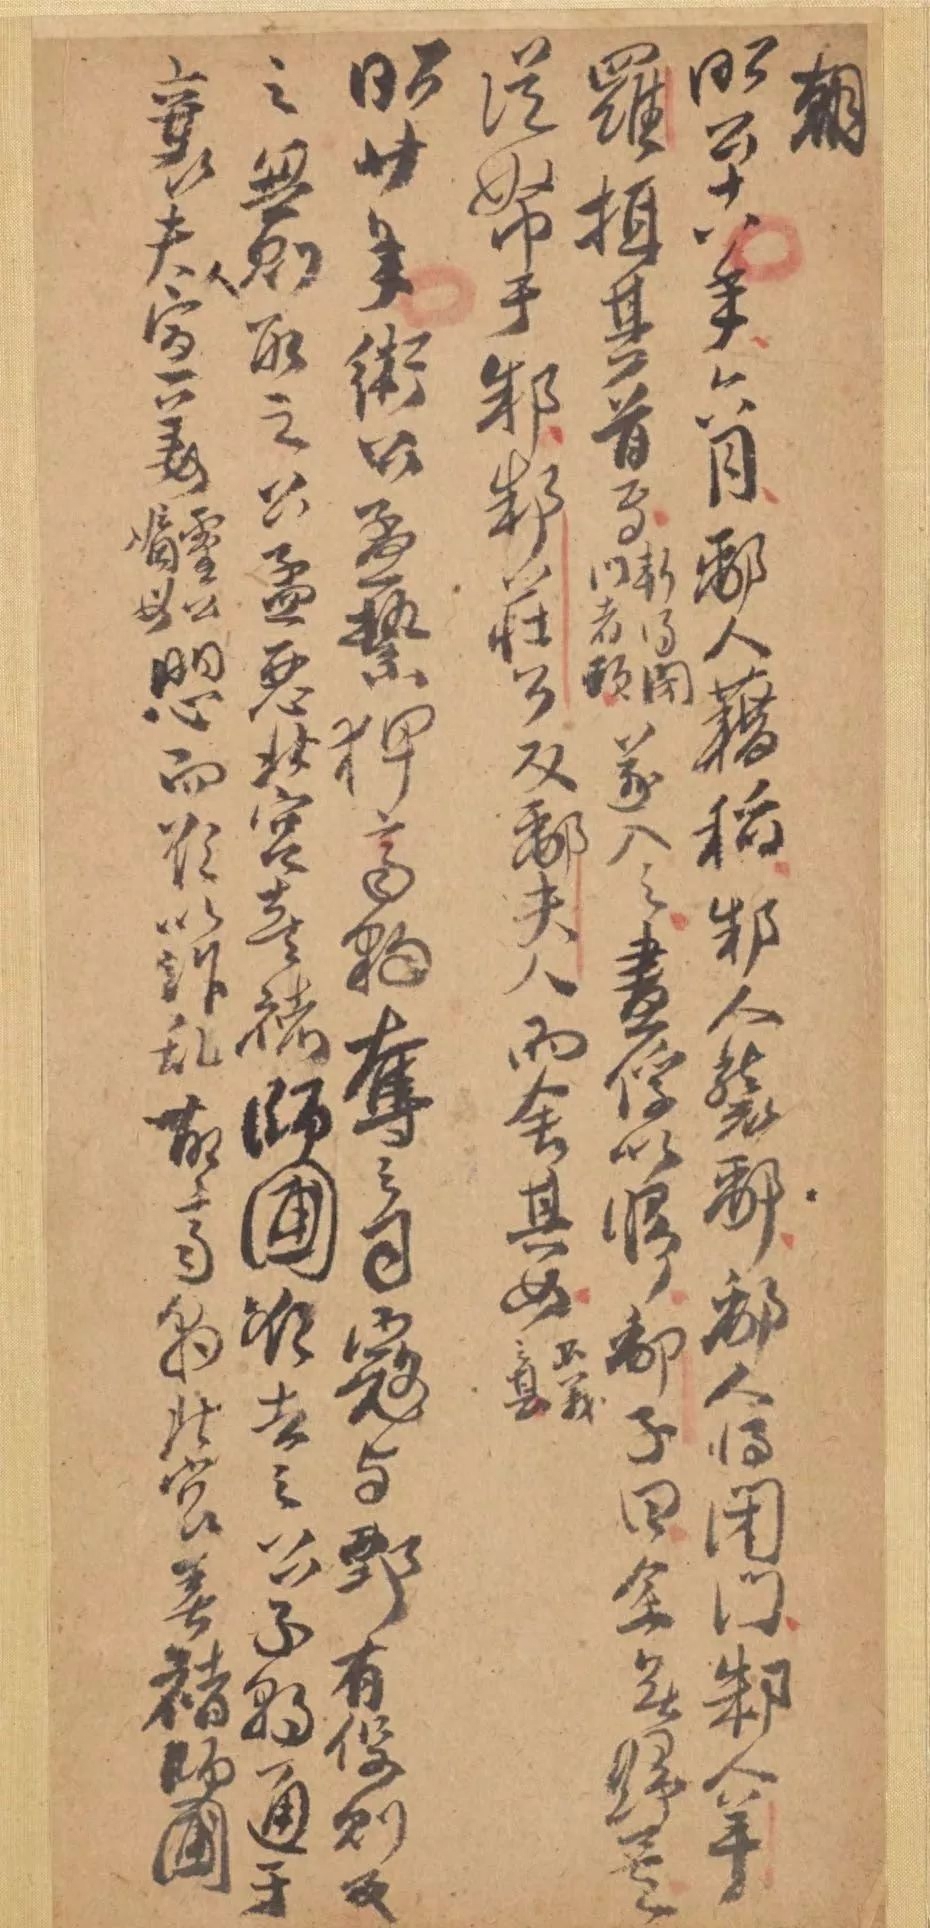 朝
昭公十八年六月鄅人藉稻邾人襲鄅鄅人將閉門邾人羊
羅攝其首焉斬得閉門者頭遂入之盡俘以歸鄅子曰余無歸矣
從帑于邾邾莊公反鄅夫人而舍其女不義之甚
昭廿年衛公孟縶狎齊豹奪之司寇与鄄有役則反
之無則取之公孟惡北宮喜褚師圃欲去之公子朝通于
襄夫人宣姜靈公嫡母愳而欲以作乱故齊豹北宮喜褚師圃